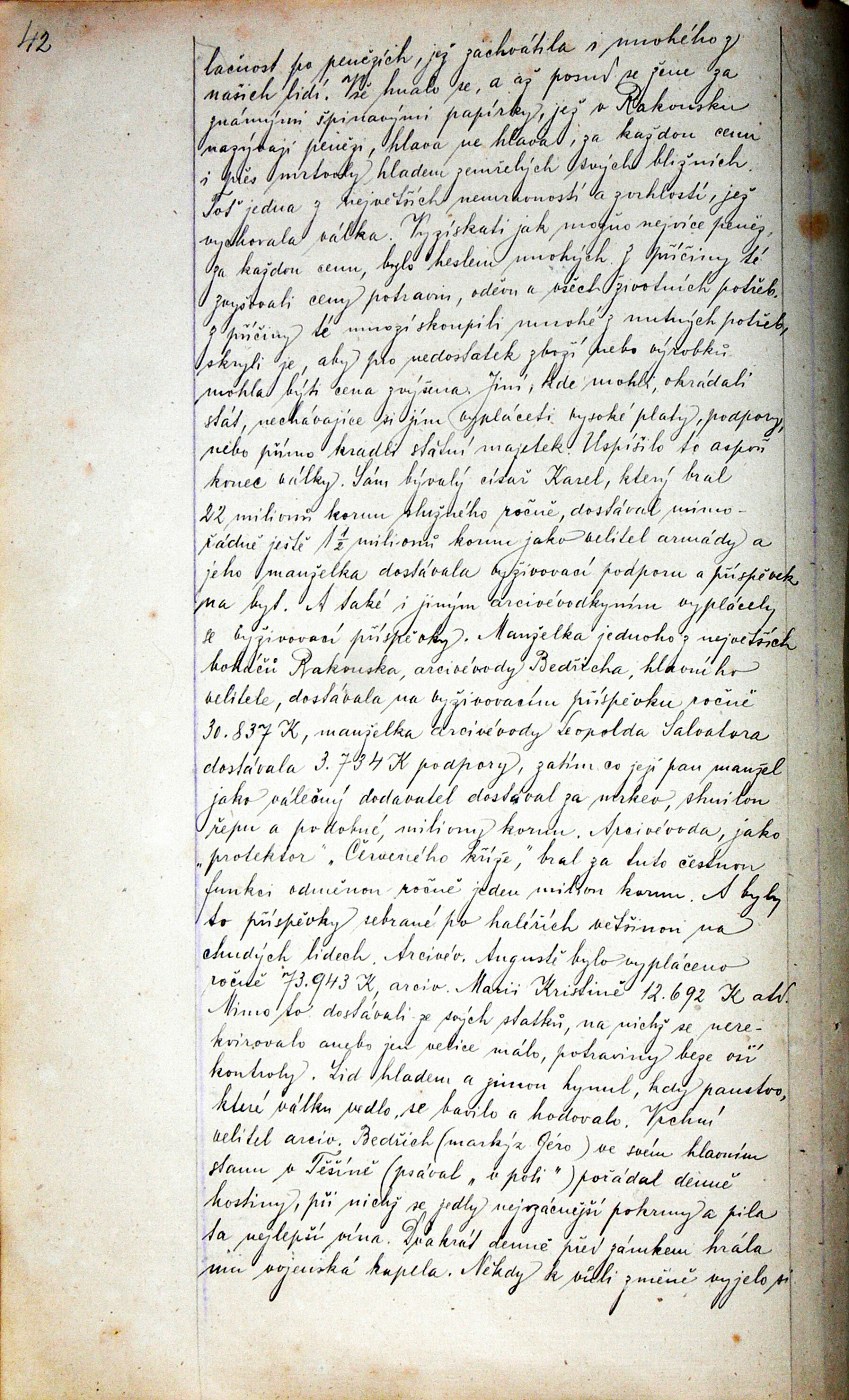 42
lačnost po penězích, jež zachvátila i mnohého z
našich lidí. Vše hnalo se, a až posud se žene za
známými špinavými papírky, jež v Rakousku
nazývají penězi, hlava ne hlava, za každou cenu
i přes mrtvoly hladem zemřelých svých bližních.
Toť jedna z největších nemravností a zvrhlostí, jež
vychovala válka. Vyzískati jak možno nejvíce peněz,
za každou cenu, bylo heslem mnohých. Z příčiny té
zvyšovali ceny potravin, oděvu a všech životních potřeb.
Z příčiny té mnozí skoupili mnohé z nutných potřeb,
skryli je, aby pro nedostatek zboží nebo výrobků
mohla býti cena zvýšena. Jiní, kde mohli, okrádali
stát, nechávajíce si jím vypláceti vysoké platy, podpory,
nebo přímo kradli státní majetek. Uspíšilo to aspoň
konec války. Sám bývalý císař Karel, který bral
22 milionů korun služného ročně, dostával mimo-
řádně ještě 1 1/2 milionů korun jako velitel armády a
jeho manželka dostávala vyživovací podporu a příspěvek
na byt. A také i jiným arcivévodkyním vyplácely
se vyživovací příspěvky. Manželka jednoho z největších
boháčů Rakouska, arcivévody Bedřicha, hlavního
velitele, dostávala na vyživovacím příspěvku ročně
30.837 K, manželka arcivévody Leopolda Salvatora
dostávala 3.734 K podpory, zatím co její pan manžel
jako válečný dodavatel dostával za mrkev, shnilou
řepu a podobné, miliony korun. Arcivévoda, jako
„protektor" „Červeného kříže," bral za tuto čestnou
funkci odměnou ročně jeden milion korun. A byly
to příspěvky sebrané po haléřích většinou na
chudých lidech. Arcivév. Augustě bylo vypláceno
ročně 73.943 K, arciv. Marii Kristině 12.692 K atd.
Mimo to dostávali ze svých statků, na nichž se nere-
kvirovalo anebo jen velice málo, potraviny beze vší
kontroly. Lid hladem a zimou hynul, kdy panstvo,
které válku vedlo, se bavilo a hodovalo. Vrchní
velitel arciv. Bedřich (markýz Géro) ve svém hlavním
stanu v Těšíně (psával „v poli") pořádal denně
hostiny, při nichž se jedly nejvzácnější pokrmy a pila
ta nejlepší vína. Dvakrát denně před zámkem hrála
mu vojenská kapela. Někdy k vůli změně vyjelo si